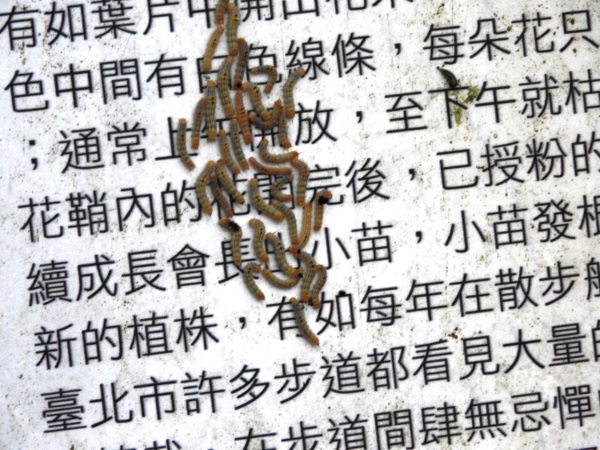 有如葉片中開出花
色中間有白色線條，每朵花只
；通常上午開放，至下午就枯
花鞘內的花開完後，已授粉的
續成長會長出小苗，小苗發根
新的植株，有如每年在散步
臺北市許多步道都看見大量的
在步道間肆無忌憚